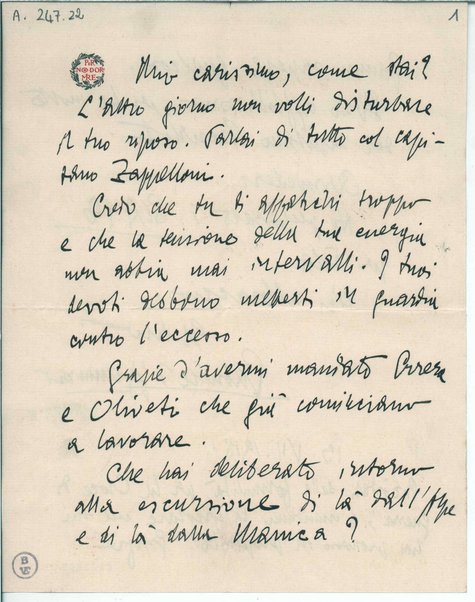 A. 247.22
1
PER
NON DOR
MIRE
Mio carissimo, come stai?
L'altro giorno non volli disturbare
il tuo riposo. Parlai di tutto col capi-
tano Zappelloni.
Credo che tu ti affatichi troppo
e che la tensione della tua energia
non abbia mai intervalli. I tuoi
devoti debbono metterti in guardia
contro l'eccesso.
Grazie d'avermi mandato Errera
e Oliveti che già cominciano
a lavorare.
Che hai deliberato intorno
alla escursione di là dall'Alpe
e di là dalla Manica?